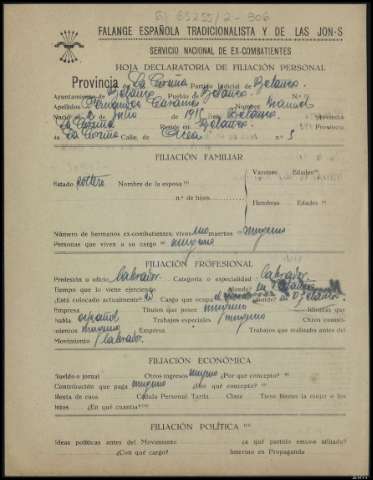 FALANGE ESPAÑOLA TRADICIONALISTA Y DE LAS JON-S
SERVICIO NACIONAL DE EX-COMBATIENTES
HOJA DECLARATORIA DE FILIACIÓN PERSONAL
Provincia de La Coruña Partido judicial de Betanzos
Ayuntamiento de Betanzos Pueblo de Betanzos N.º
Apellidos Fernandez Nombre Manuel
Nació el de Julio de 1915 en Betanzos Provincia
La Coruña Reside en Betanzos Provincia
de La Coruña Calle, de n.º 5
FILIACIÓN FAMILIAR
Varones Edades
Estado soltero Nombre de la esposa
n.º de hijos
Hembras Edades
Número de hermanos ex-combatientes; vivos uno muertos ninguno
Personas que viven a su cargo ninguna
FILIACIÓN PROFESIONAL
Profesión u oficio labrador Categoría o especialidad labrador
Tiempo que lo viene ejerciendo
¿Está colocado actualmente? Cargo que ocupa donde en Betanzos
Empresa Títulos que posee ninguno Idiomas que
habla español Trabajos especiales ninguno Otros conoci-
mientos ninguno Empresa Trabajos que realizaba antes del
Movimiento labrador
FILIACIÓN ECONÓMICA
Sueldo o jornal Otros ingresos ninguno ¿Por qué concepto?
Contribución que paga ninguna ¿Por qué concepto?
Renta de casa Cédula Personal Tarifa Clase Tiene bienes la mujer o los
hijos ¿En qué cuantía?
FILIACIÓN POLÍTICA
Ideas políticas antes del Movimiento ¿a qué partido estuvo afiliado?
¿Con qué cargo? Intervino en Propaganda